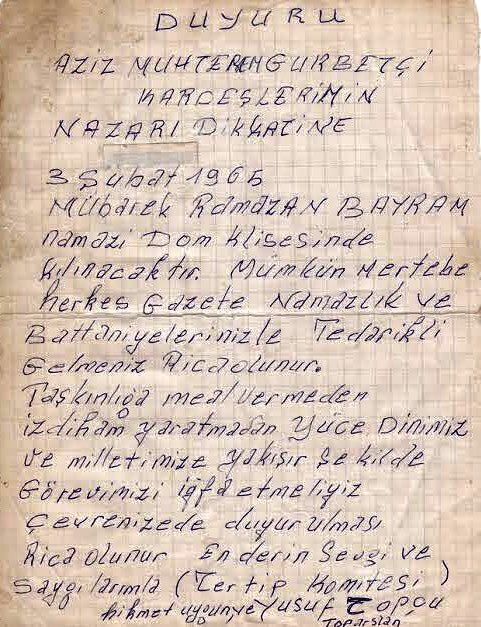 DUYURU
AZİZ MUHTEREM GURBETÇİ
KARDEŞLERİMİN
NAZARI DİKKATİNE
3 Şubat 1965
Mübarek Ramazan BAYRAM
namazi Dom Klisesinde
kılınacaktır. Mümkün Mertebe
herkes Gazete Namazlık ve
Battaniyelerinizle Tedarikli
Gelmeniz Ricaolunur.
Taşkınlığa meal vermeden
izdiham yaratmadan Yüce Dinimiz
ve milletimize yakışır şekilde
Görevimizi ifa etmeliyiz
Çevrenizede duyurulması
Rica olunur En derin Sevgi ve
Saygılarımla (Tertip Komitesi)
hikmet ve Yusuf Topçu
Toparslan